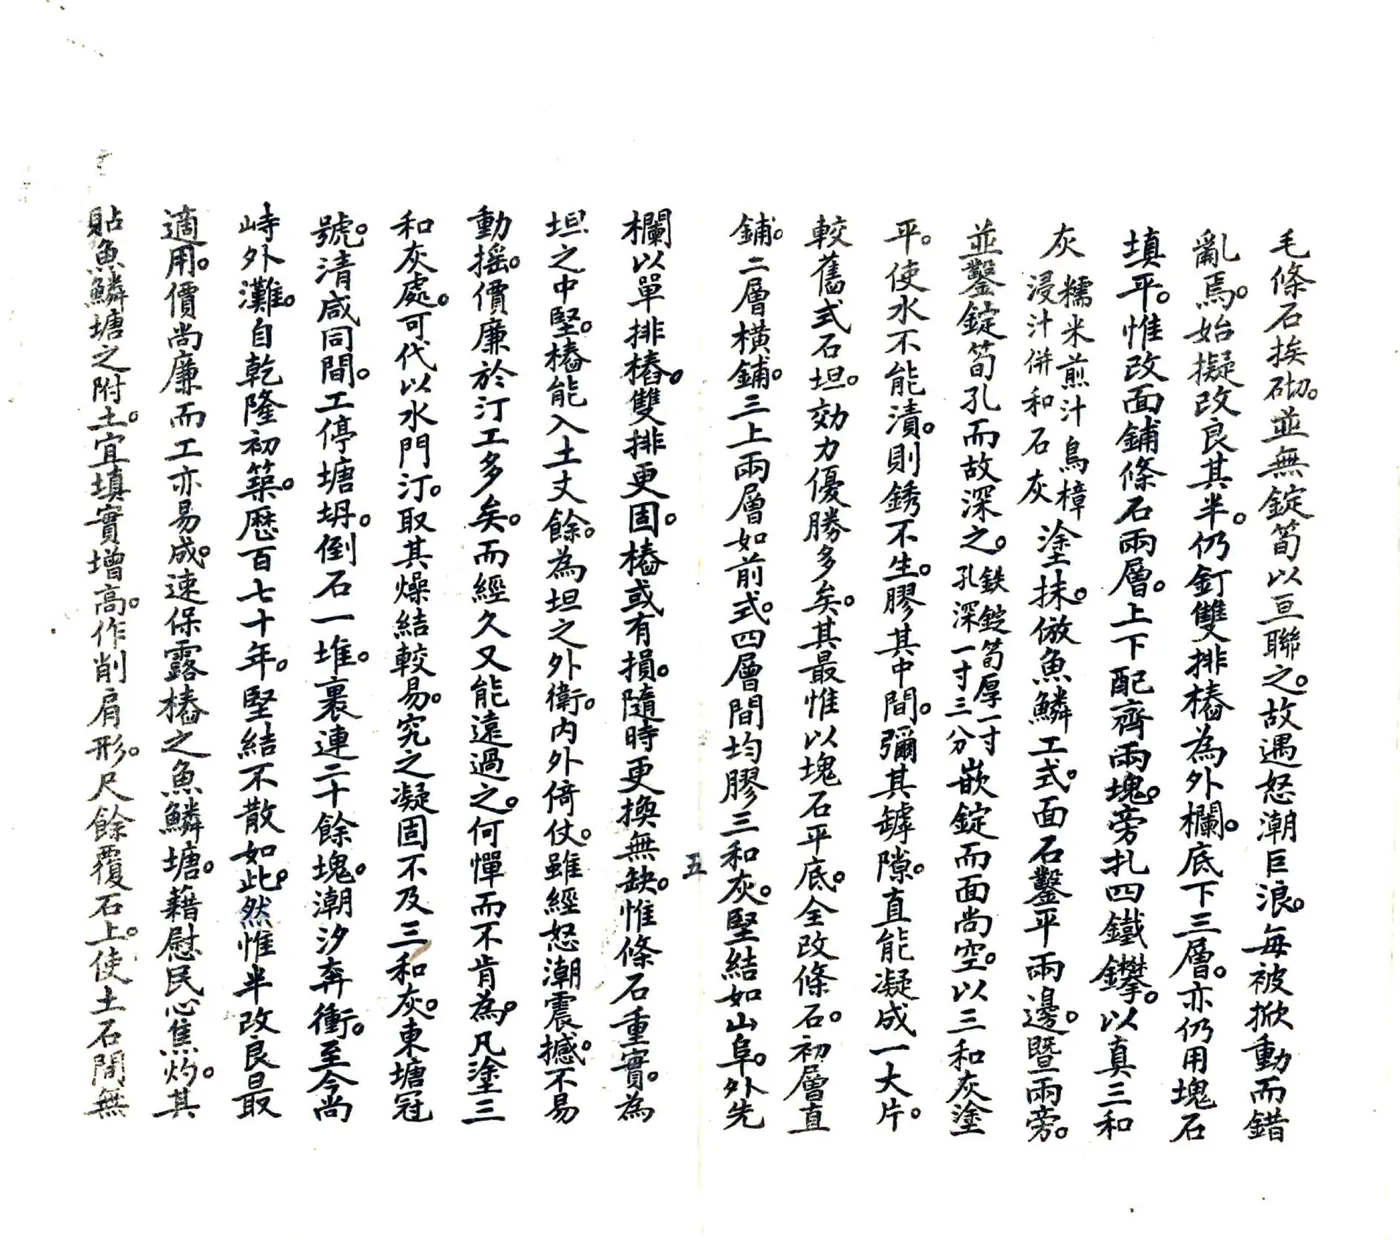 毛條石挨砌。並無錠筍以亘聯之。故遇怒潮巨浪。每被掀動而錯
亂焉。始擬改良其半。仍釘雙排樁為外欄。底下三層。亦仍用塊石
填平。惟改面鋪條石兩層。上下配齊兩塊。旁扎四鐵鑻。以真三和
灰糯米煎汁烏樟浸汁併和石灰塗抹。倣魚鱗工式。面石鑿平兩邊。暨兩旁。
並鑿錠筍孔而故深之。鉄錠筍厚一寸孔深一寸三分嵌錠而面尚空。以三和灰塗
平。使水不能漬。則銹不生。膠其中間。彌其罅隙。直能凝成一大片。
較舊式石坦。効力優勝多矣。其最惟以塊石平底。全改條石。初層直
鋪。二層橫鋪。三上兩層如前式。四層間均膠三和灰。堅結如山阜。外先
五
欄以單排樁。雙排更固。樁或有損。隨時更換無缺。惟條石重實。為
坦之中堅。樁能入土丈餘。為坦之外衛。內外倚仗。雖經怒潮震撼。不易
動搖。價廉於汀工多矣。而經久又能遠過之。何憚而不肯為。凡塗三
和灰處。可代以水門汀。取其燥結較易。究之凝固不及三和灰。東塘冠
號。清咸同間。工停塘坍。倒石一堆。裏連二十餘塊。潮汐奔衝。至今尚
峙外灘。自乾隆初築。歷百七十年。堅結不散如此。然惟半改良最
適用。價尚廉而工亦易成。速保露樁之魚鱗塘。藉慰民心焦灼。其
貼魚鱗塘之附土。宜填實增高。作削肩形。尺餘覆石上。使土石間無